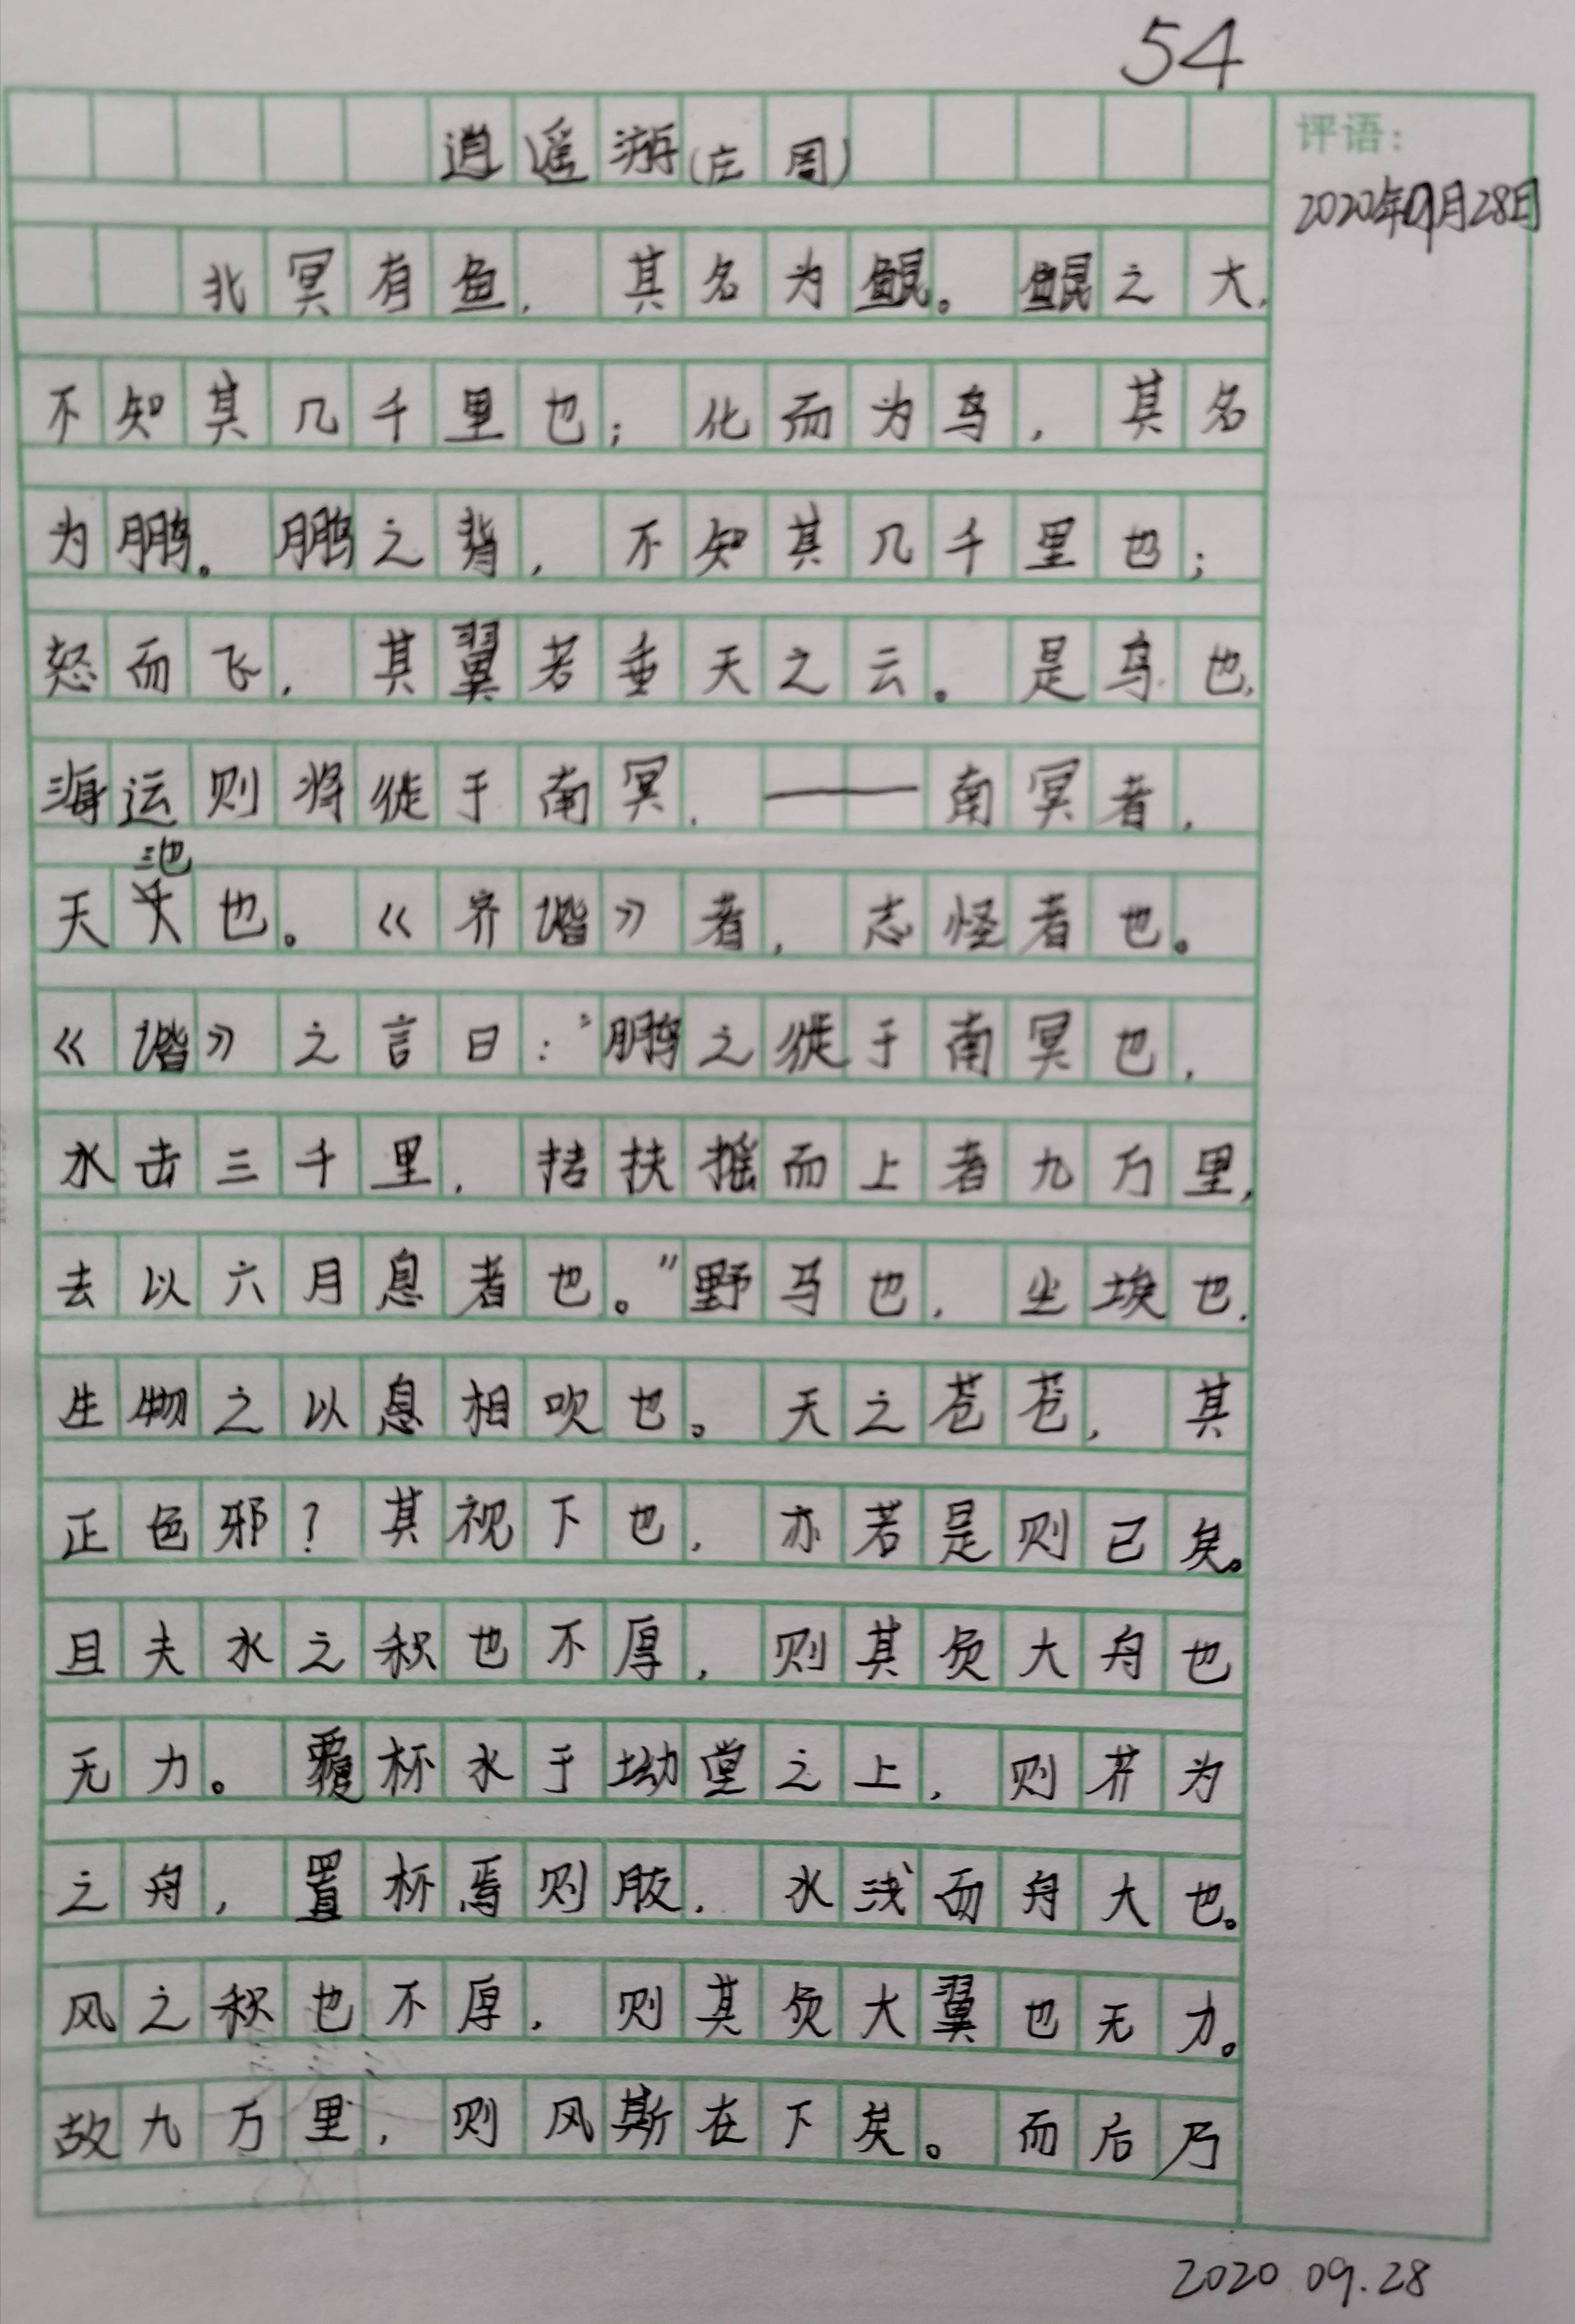 54
逍遥游(庄周)
评语:
2020年9月28日
北冥有鱼,其名为鲲。鲲之大,
不知其几千里也;化而为鸟,其名
为鹏。鹏之背,不知其几千里也;
怒而飞,其翼若垂天之云。是鸟也,
海运则将徙于南冥,——南冥者,
天池也。《齐谐》者,志怪者也。
《谐》之言曰:“鹏之徙于南冥也,
水击三千里,抟扶摇而上者九万里,
去以六月息者也。”野马也,尘埃也,
生物之以息相吹也。天之苍苍,其
正色邪?其视下也,亦若是则已矣。
且夫水之积也不厚,则其负大舟也
无力。覆杯水于坳堂之上,则芥为
之舟,置杯焉则胶,水浅而舟大也。
风之积也不厚,则其负大翼也无力。
故九万里,则风斯在下矣。而后乃
2020.09.28